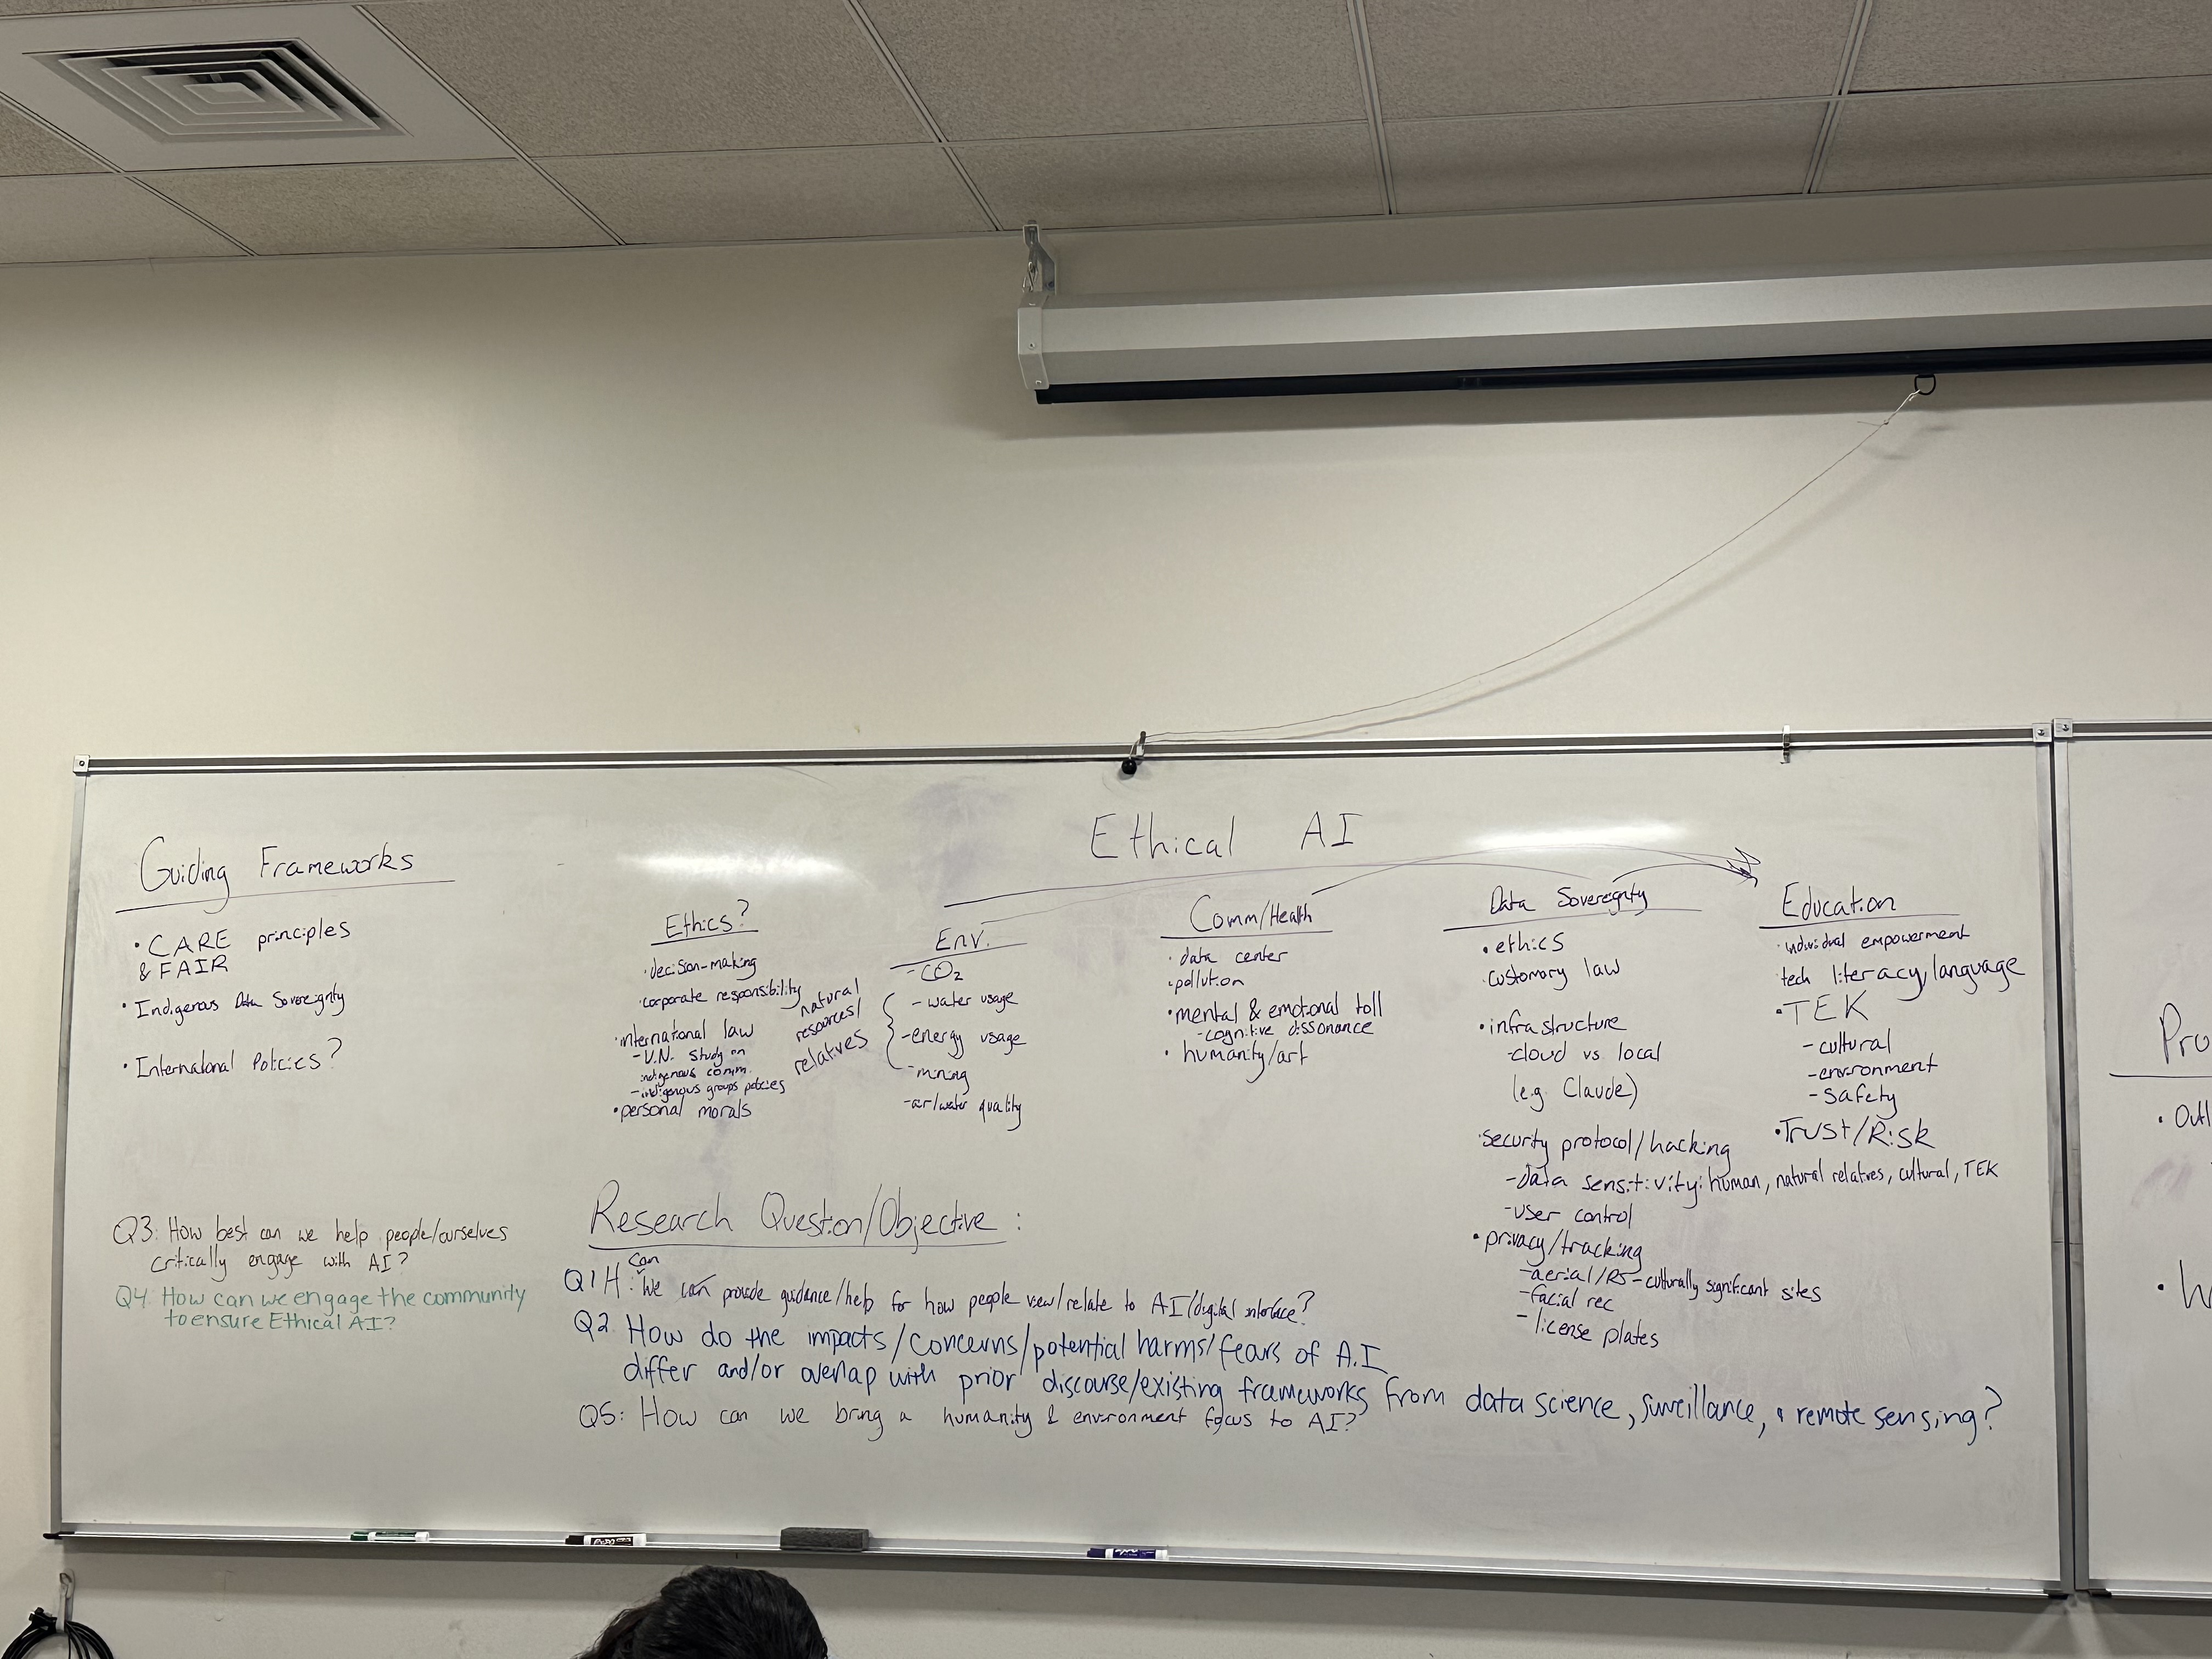 Ethical AI
Guiding Frameworks
• CARE principles
& FAIR
• Indigenous Data Sovereignty
• International Policies?
Ethics?
• decision-making
• corporate responsibility
• international law
- U.N. Study on
indigenous comm.
- indigenous groups policies
• personal morals
natural
resources/
relatives
Env.
- CO2
- water usage
- energy usage
- mining
- air/water quality
Comm/Health
• data center
• pollution
• mental & emotional toll
- cognitive dissonance
• humanity/art
Data Sovereignty
• ethics
customary law
• infrastructure
- cloud vs local
(e.g. Claude)
• security protocol/hacking
- data sensitivity: human, natural relatives, cultural, TEK
- user control
• privacy/tracking
- aerial/RS - culturally significant sites
- facial rec
- license plates
Education
• individual empowerment
tech literacy/language
• TEK
- cultural
- environment
- safety
• Trust/Risk
Q3: How best can we help people/ourselves
critically engage with AI?
Q4: How can we engage the community
to ensure Ethical AI?
Research Question/Objective:
can
Q1 H: We can provide guidance/help for how people view/relate to AI/digital interface?
Q2 How do the impacts/concerns/potential harms/fears of A.I
differ and/or overlap with prior discourse/existing frameworks from data science, surveillance, & remote sensing?
Q5: How can we bring a humanity & environment focus to AI?
Pro
• Outl
• h
EXPO